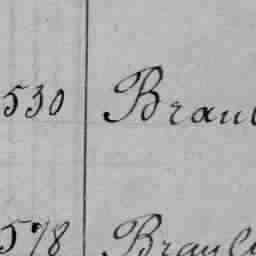 530 Brau
578 Brau